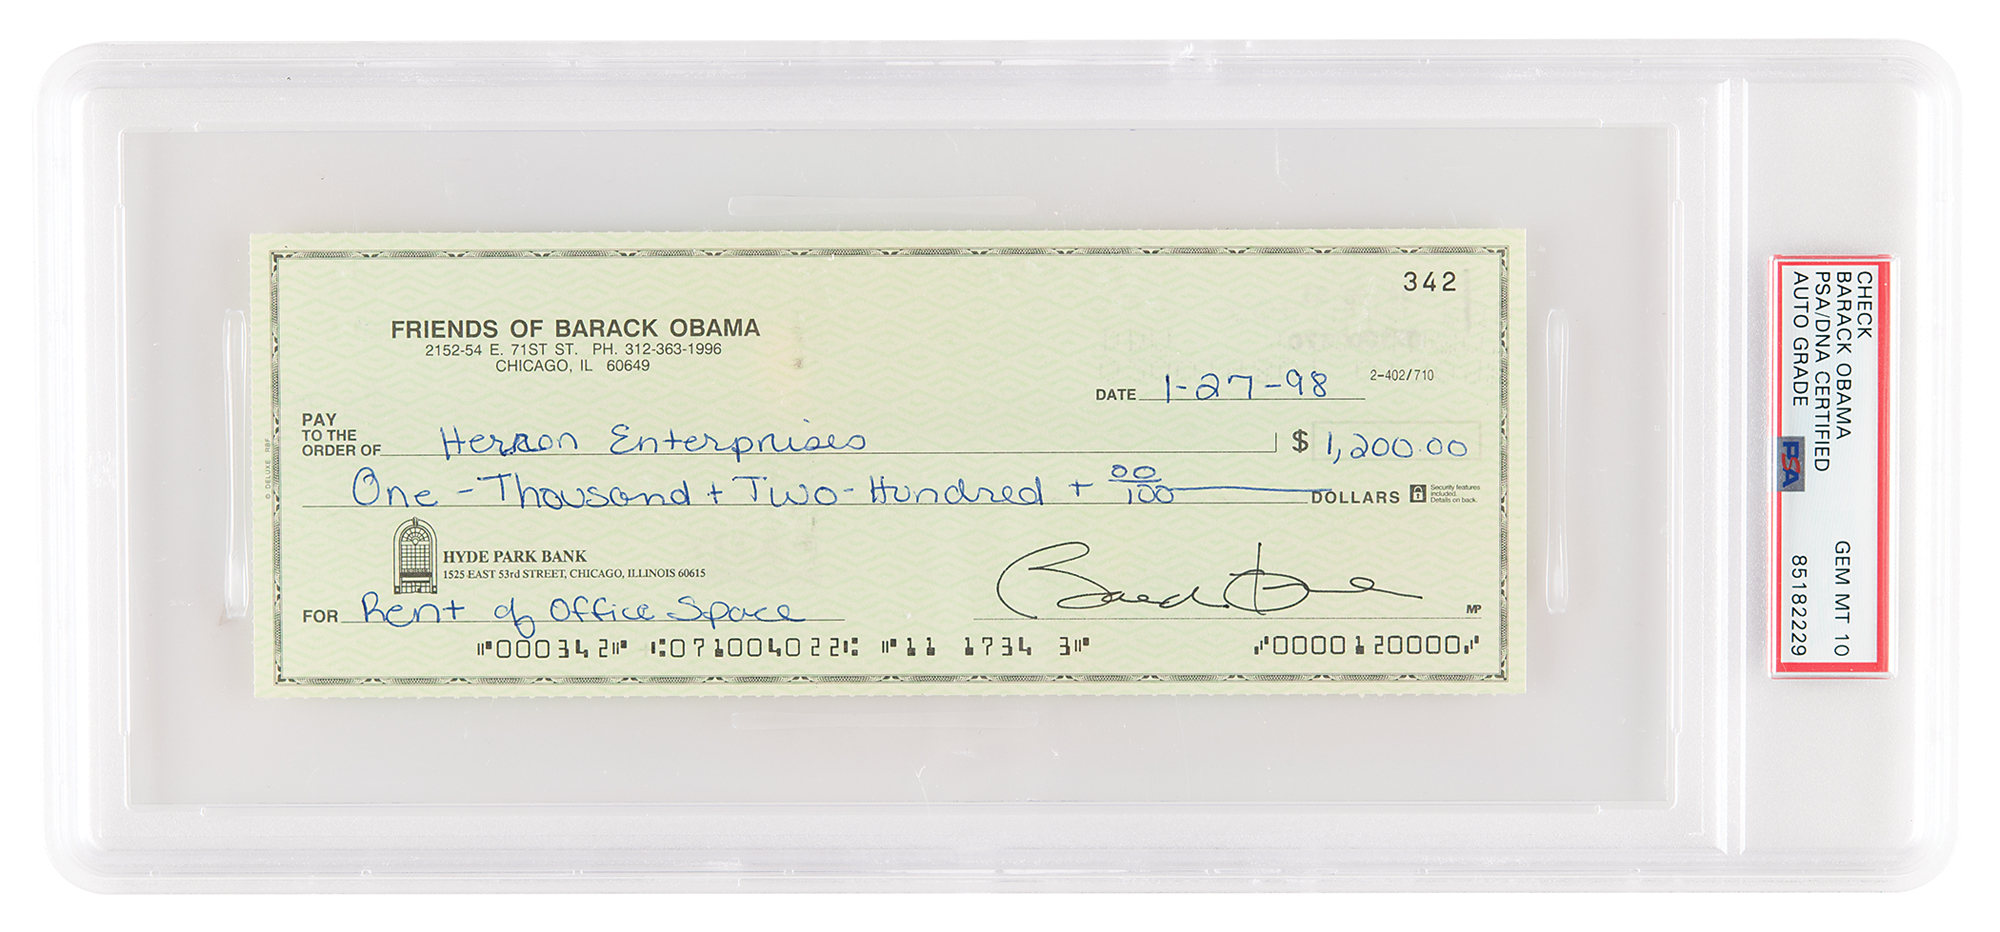 342
FRIENDS OF BARACK OBAMA
2152-54 E. 71ST ST. PH. 312-363-1996
CHICAGO, IL 60649
DATE 1-27-98 2-402/710
PAY
TO THE
ORDER OF Herron Enterprises $ 1,200.00
One-Thousand + Two-Hundred + 00/100 DOLLARS
Security features
included.
Details on back.
HYDE PARK BANK
1525 EAST 53rd STREET, CHICAGO, ILLINOIS 60615
FOR Rent of Office Space
Barack Obama
MP
⑈000342⑈ ⑆071004022⑆ ⑈11 1734 3⑈ ⑇0000120000⑇
© DELUXE RBF
CHECK
BARACK OBAMA
PSA/DNA CERTIFIED GEM MT 10
AUTO GRADE 85182229
PSA